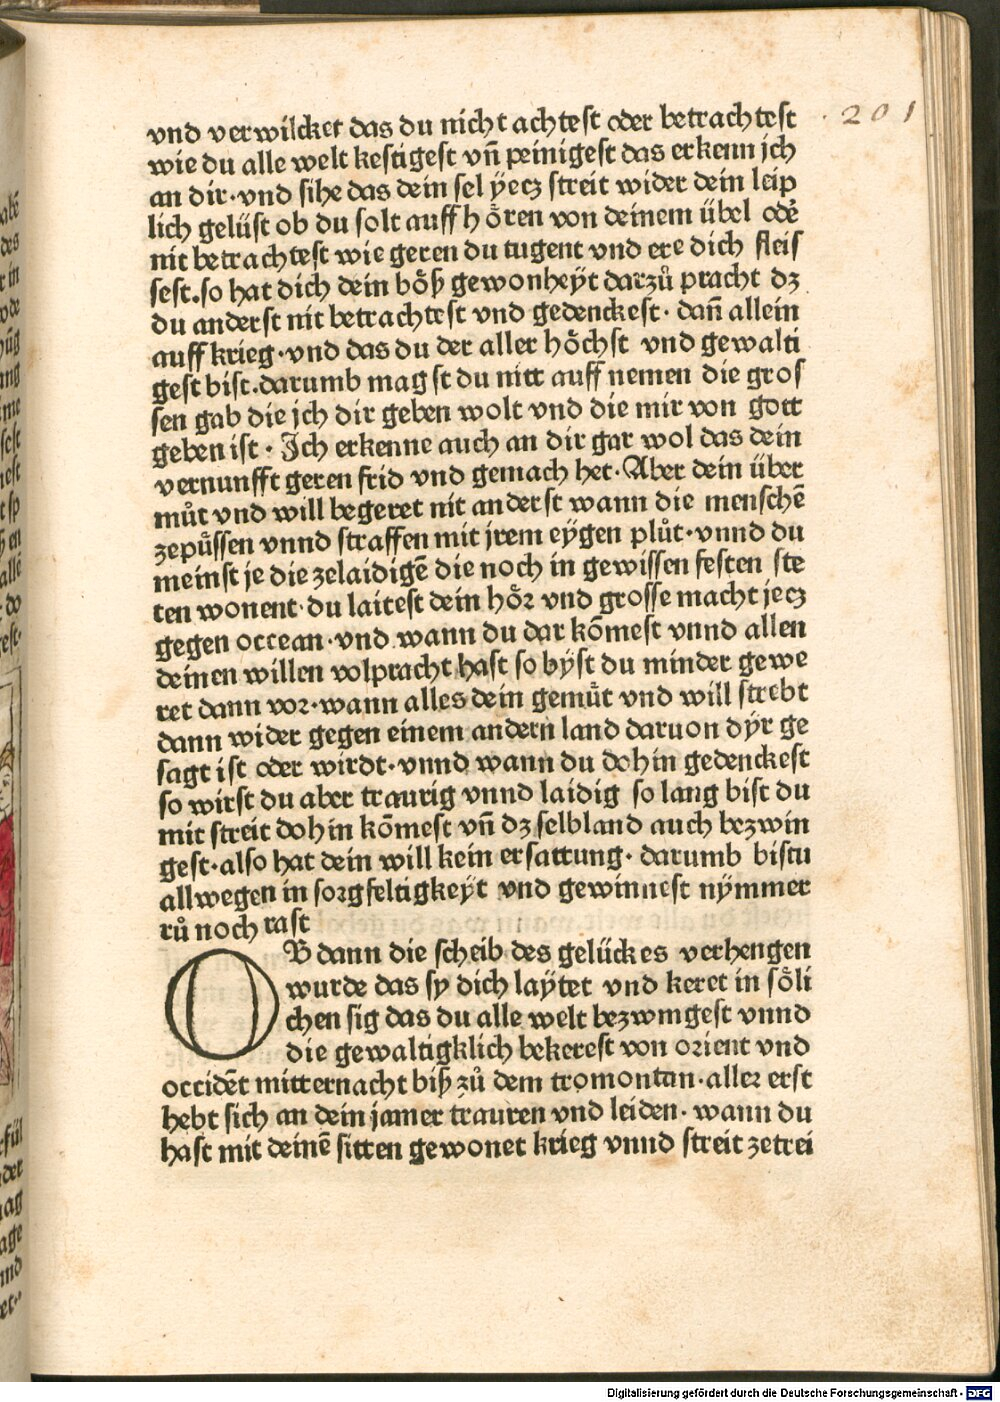 201
vnd verwilcket das du nicht achtest oder betrachtest
wie du alle welt kestigest vn̄ peinigest das erkenn jch
an dir·vnd sihe das dein sel ÿecz streit wider dein leip
lich gelüst ob du solt auff hoͤren von deinem übel oder
nit betrachtest wie geren du tugent vnd ere dich fleis
sest.so hat dich dein boͤß gewonheÿt darzů pracht dz
du anderst nit betrachtest vnd gedenckest· dan̄ allein
auff krieg·vnd das du der aller hoͤchst vnd gewalti
gest bist.darumb magst du nitt auff nemen die gros
sen gab die jch dir geben wolt vnd die mir von gott
geben ist· Jch erkenne auch an dir gar wol das dein
vernunfft geren frid vnd gemach het·Aber dein über
můt vnd will begeret nit anderst wann die menschē
zepuͤssen vnnd straffen mit jrem eÿgen plůt·vnnd du
meinst je die zelaidigē die noch in gewissen festen ste
ten wonent·du laitest dein hoͤr vnd grosse macht jecz
gegen occean·vnd wann du dar kōmest vnnd allen
deinen willen volpracht hast so bÿst du minder gewe
ret dann vor·wann alles dein gemuͤt vnd will strebt
dann wider gegen einem andern land daruon dÿr ge
sagt ist oder wirdt·vnnd wann du dohin gedenckest
so wirst du aber traurig vnnd laidig so lang bist du
mit streit dohin kōmest vn̄ dz selbland auch bezwin
gest·also hat dein will kein ersattung· darumb bistu
allwegen in sorgfeltigkeÿt vnd gewinnest nÿmmer
rů noch rast
OB dann die scheib des gelückes verhengen
wurde das sy dich laÿtet vnd keret in soͤli
chen sig das du alle welt bezwingest vnnd
die gewaltigklich bekerest von orient vnd
occidēt mitternacht biß zů dem tromontan·aller erst
hebt sich an dein jamer trauren vnd leiden· wann du
hast mit deinē sitten gewonet krieg vnnd streit zetrei
Digitalisierung gefördert durch die Deutsche Forschungsgemeinschaft - DFG